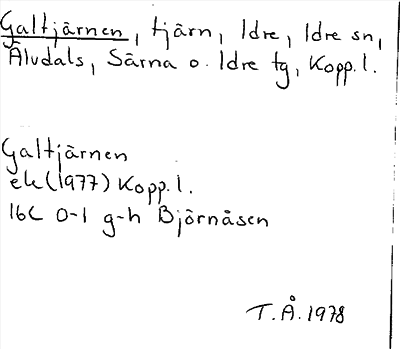 Galtjärnen, tjärn, Idre, Idre sn,
Älvdals, Särna o. Idre tg, Kopp. l.
Galtjärnen
ek (1977) Kopp. l.
16C 0-1 g-h Björnåsen
T.Å. 1978